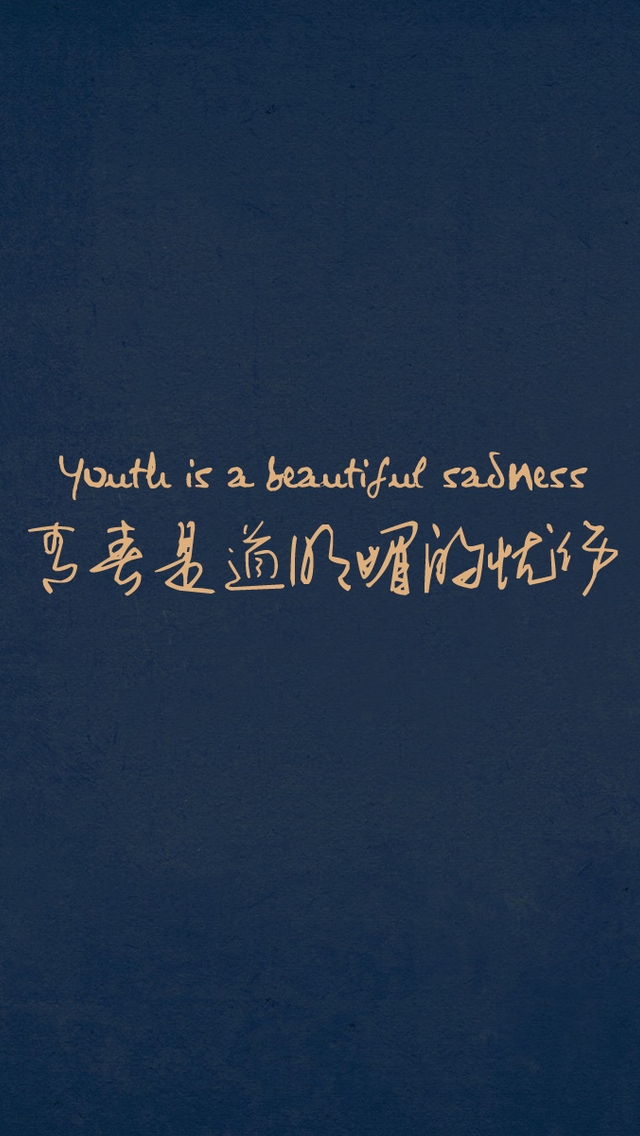 Youth is a beautiful sadness
青春是道明媚的忧伤